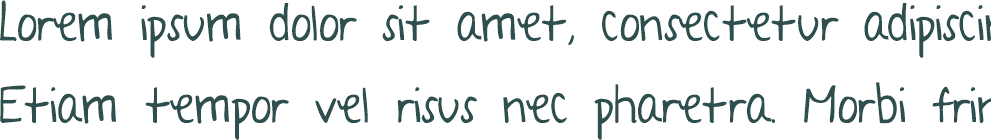 Lorem ipsum dolor sit amet, consectetur adipiscin
Etiam tempor vel risus nec pharetra. Morbi frin